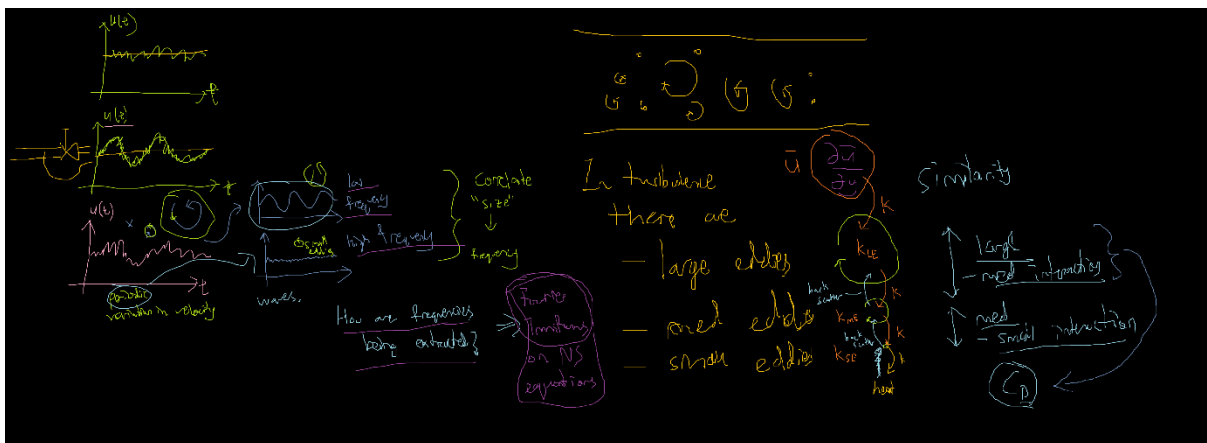 u(t)
t
u(t)
t
u(t)
t
periodic
variation in velocity
low
frequency
high frequency
small
waves.
Correlate
"size"
↓
frequency
How are frequencies
being extracted?
⇒
Fourier
on NS
equations
In turbulence
there are
- large eddies
- med eddies
- small eddies
ū ∂ū
k
k_LE
back
scatter
k
k_ME
k
back
scatter
k_SE
k
heat
Similarity
large
- med interaction
med
- small interaction